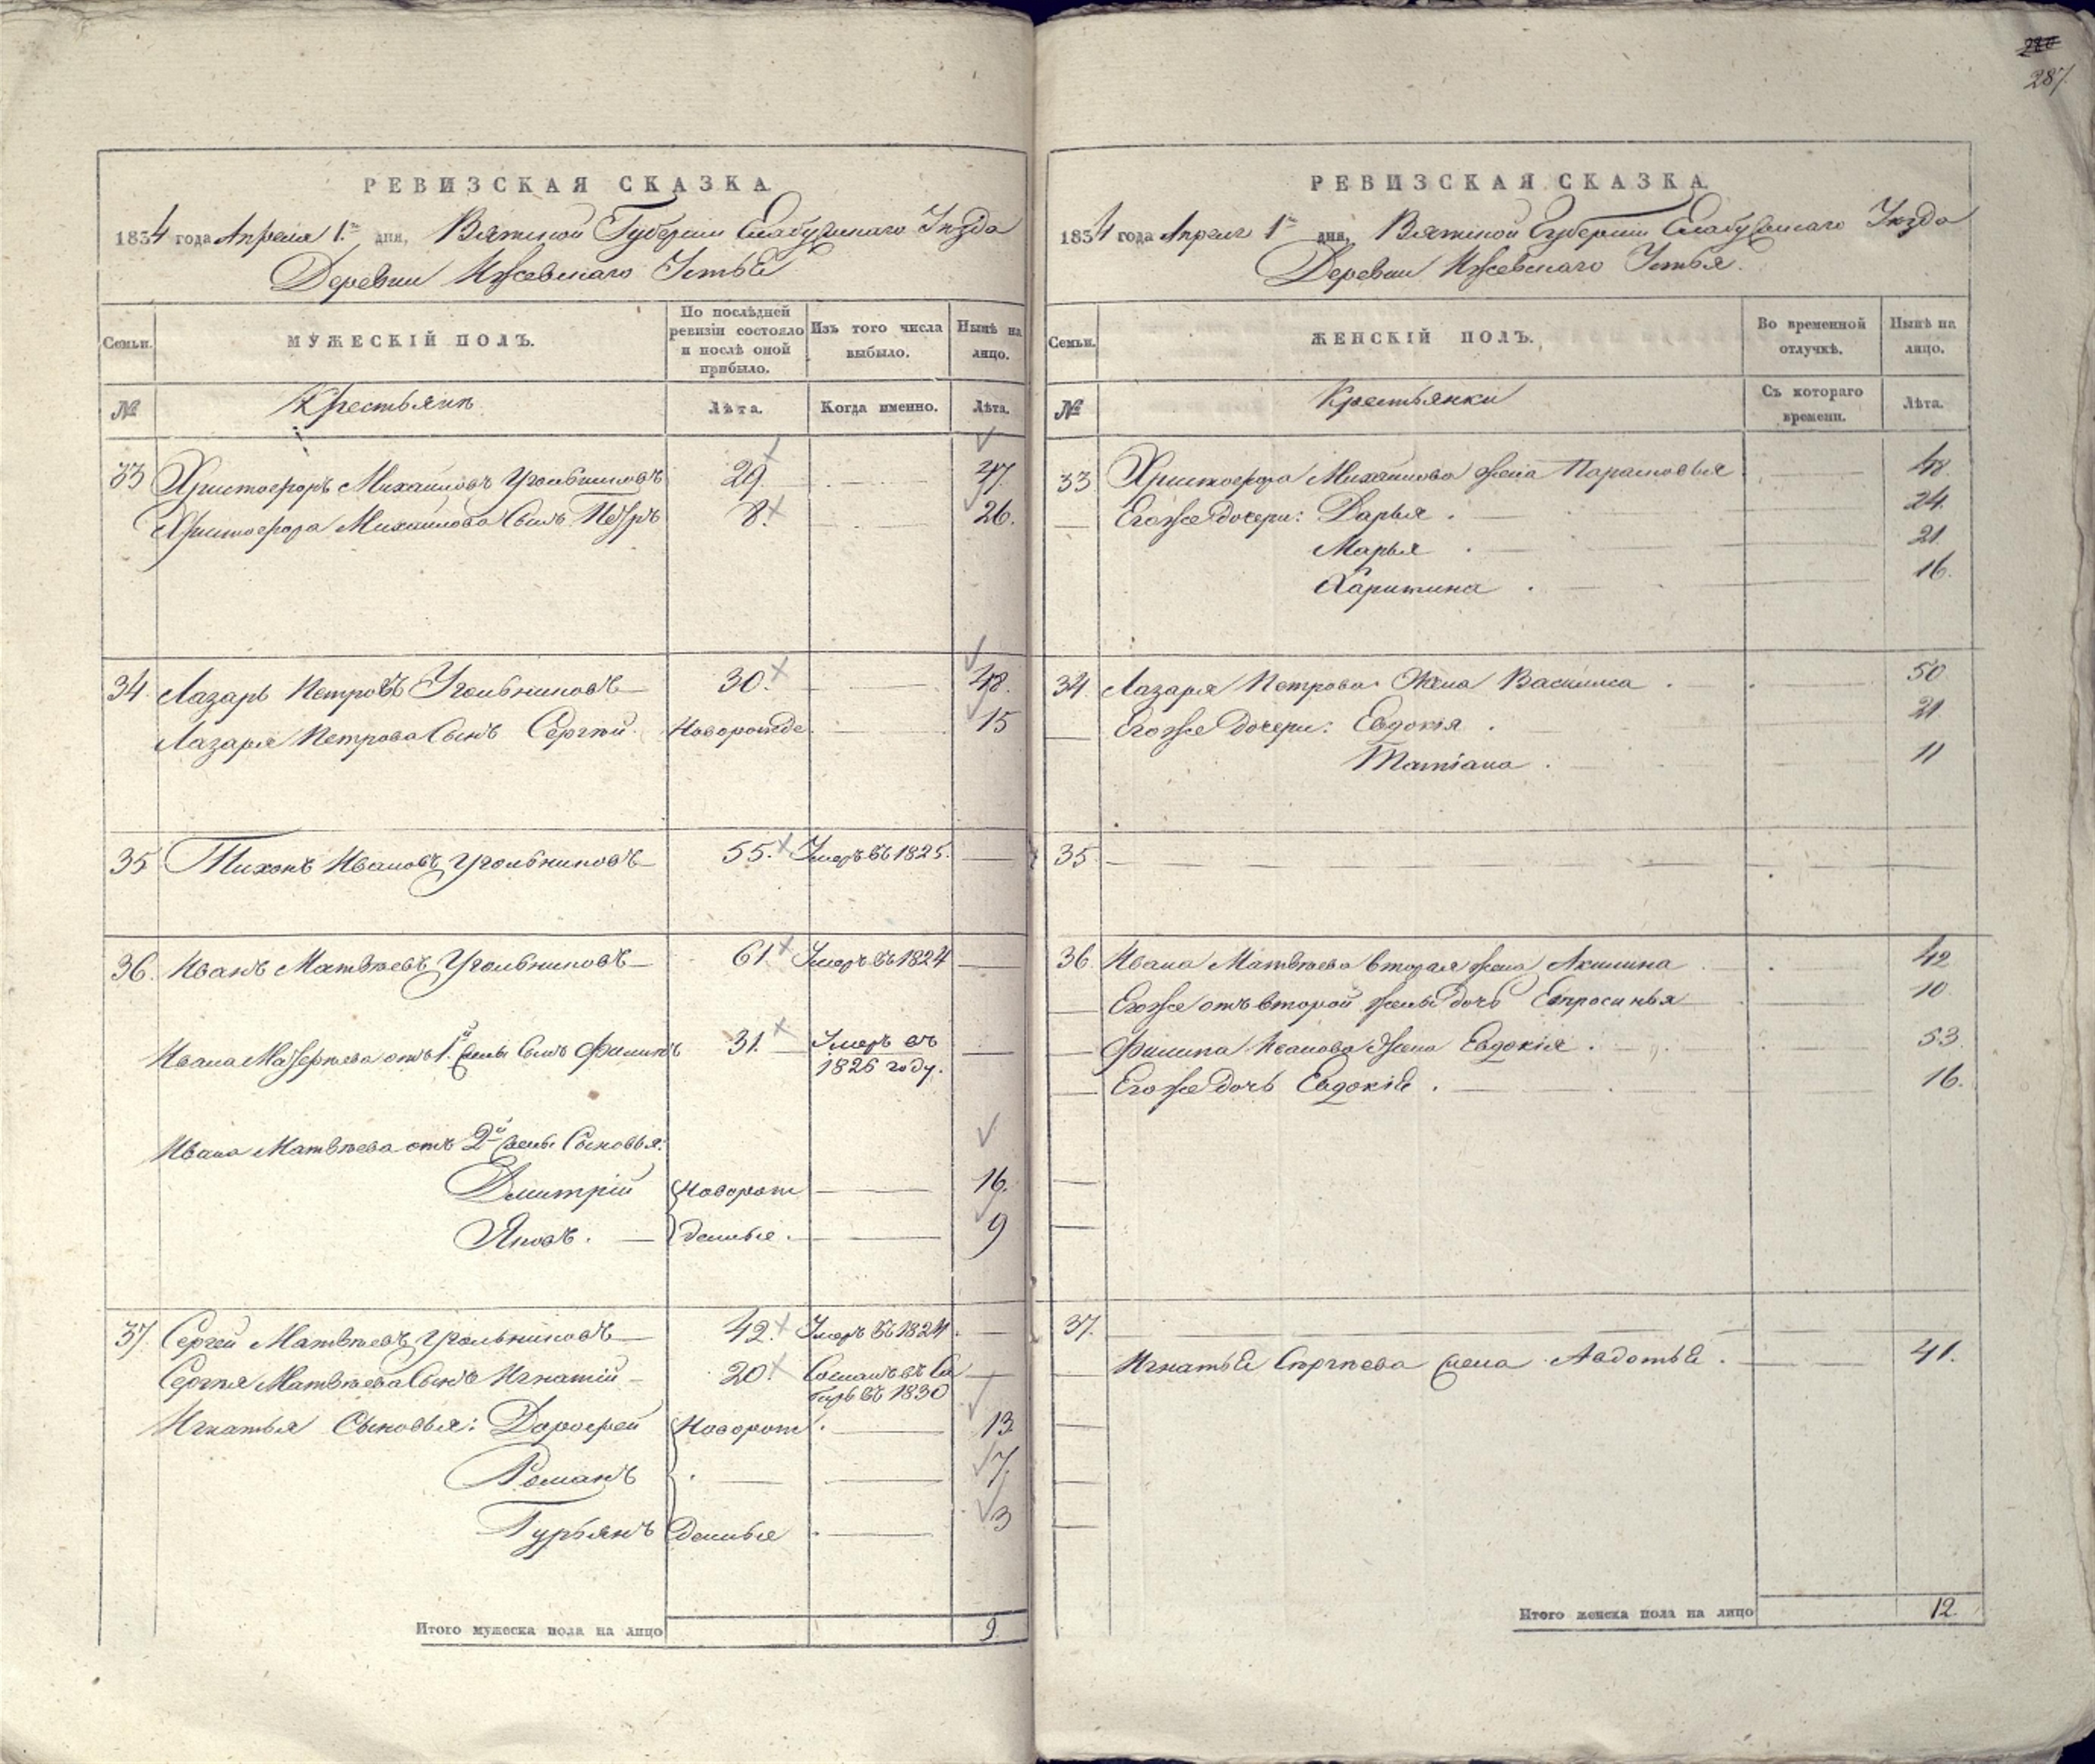 287.
РЕВИЗСКАЯ СКАЗКА
1834 года Апреля 1го дня, Вятской Губернии Елабугскаго Уѣзда
Деревни Ижевскаго Устья
Семьи.
МУЖЕСКІЙ ПОЛЪ.
По послѣдней ревизіи состояло и послѣ оной прибыло.
Изъ того числа выбыло.
Нынѣ на лицо.
№
Крестьяне
Лѣта.
Когда именно.
Лѣта.
33 Христофоръ Михайловъ Угольниковъ 29 47.
Христофора Михайлова Сынъ Петръ 8. 26.
34. Лазарь Петровъ Угольниковъ 30. 48.
Лазаря Петрова Сынъ Сергѣй Новорожде 15
35 Тихонъ Ивановъ Угольниковъ 55. Умеръ въ 1825.
36. Иванъ Матвѣевъ Угольниковъ 61. Умеръ въ 1824
Ивана Матвѣева отъ 1й жены Сынъ Филипъ 31. Умеръ въ
1826 году.
Ивана Матвѣева отъ 2й жены Сыновья:
Дмитрій Новорож 16.
Яковъ. денные. 9
37. Сергей Матвѣевъ Угольниковъ 42. Умеръ въ 1824.
Сергѣя Матвѣева Сынъ Игнатій 20. Сосланъ въ Си
бирь въ 1830
Игнатья Сыновья: Дорофей Новорож 13.
Романъ 7.
Гурьянъ денные 3
Итого мужеска пола на лицо 9.
РЕВИЗСКАЯ СКАЗКА
1834 года Апреля 1го дня, Вятской Губернии Елабугскаго Уѣзда
Деревни Ижевскаго Устья.
Семьи.
ЖЕНСКІЙ ПОЛЪ.
Во временной отлучкѣ.
Нынѣ на лицо.
№
Крестьянки
Съ котораго времени.
Лѣта.
33 Христофора Михайлова жена Парасковья 48.
Егоже дочери: Дарья. 24.
Марья. 21.
Харитина. 16.
34. Лазаря Петрова Жена Василиса. 50
Егоже дочери: Евдокія. 21
Татіана. 11
35.
36. Ивана Матвѣева вторая жена Акилина 42
Егоже отъ второй жены дочь Епросинья 10
Филипа Иванова Жена Евдокія. 53.
Егоже дочь Евдокія. 16.
37.
Игнатья Сергѣева жена Авдотья. 41.
Итого женска пола на лицо 12.